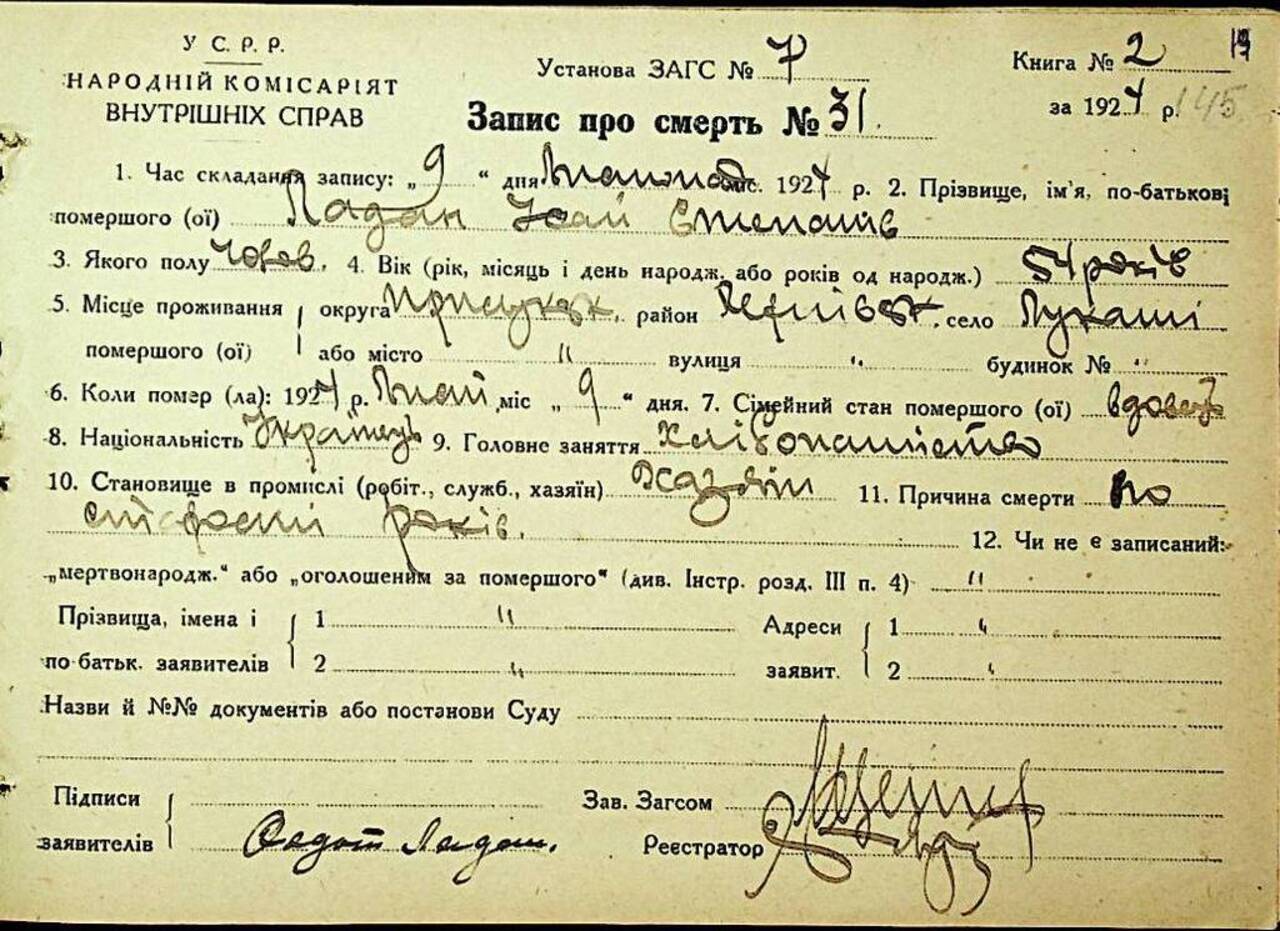 У С. Р. Р.
НАРОДНІЙ КОМІСАРІЯТ
ВНУТРІШНІХ СПРАВ
Установа ЗАГС № 7
Запис про смерть № 31.
Книга № 2
19
за 1924 р. 145
1. Час складання запису: „ 9 “ дня міс. 1924 р. 2. Прізвище, ім'я, по-батькові
помершого (ої) Ладан Ісай Степанів
3. Якого полу Чолов. 4. Вік (рік, місяць і день народж. або років од народж.) 54 років
5. Місце проживання округа Прилуцьк. район село Лукаші
помершого (ої) або місто " вулиця " будинок № "
6. Коли помер (ла): 1924 р. міс „ 9 “ дня. 7. Сімейний стан помершого (ої) вдовець
8. Національність Українець 9. Головне заняття Хлібопашество
10. Становище в промислі (робіт., служб., хазяїн) Хазяїн 11. Причина смерти по
старости років.
12. Чи не є записаний:
„мертвонародж.“ або „оголошеним за помершого“ (див. Інстр. розд. III п. 4) "
Прізвища, імена і 1 " Адреси 1 "
по батьк. заявителів 2 " заявит. 2 "
Назви й №№ документів або постанови Суду
Підписи Зав. Загсом
заявителів Федот Ладан. Реєстратор